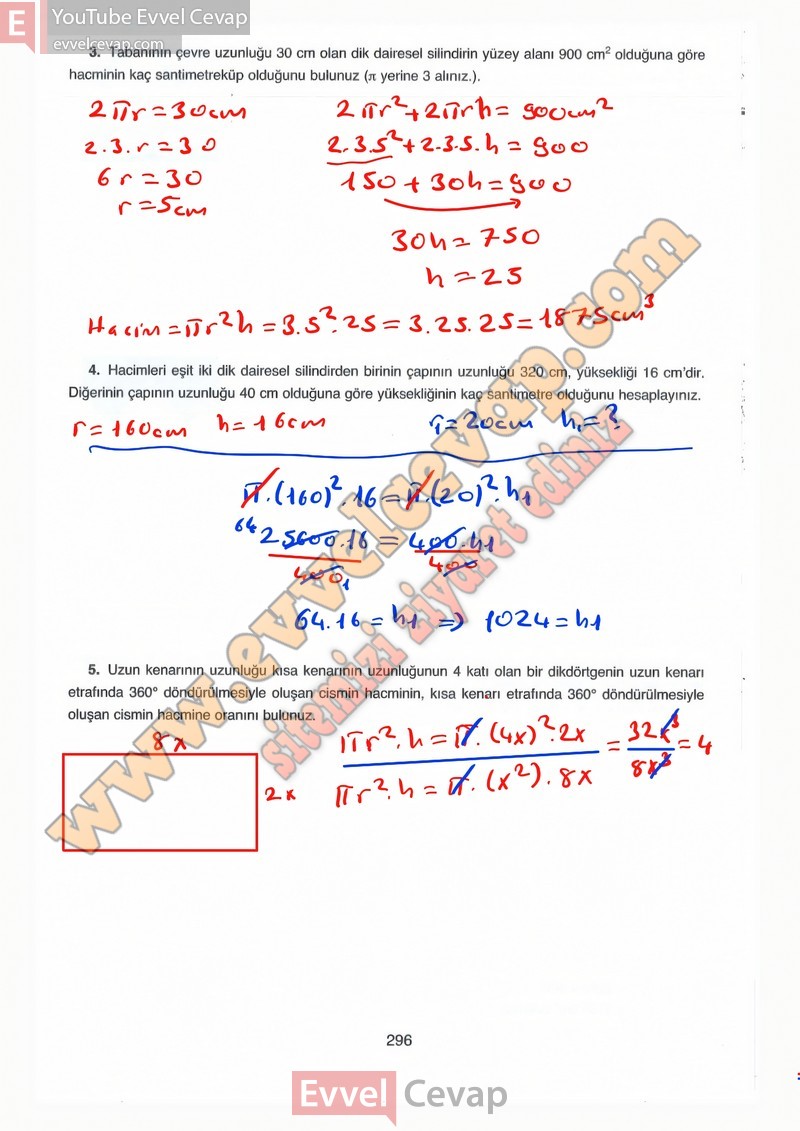 E YouTube Evvel Cevap
evvelcevap.com
3. Tabanının çevre uzunluğu 30 cm olan dik dairesel silindirin yüzey alanı 900 cm² olduğuna göre
hacminin kaç santimetreküp olduğunu bulunuz (π yerine 3 alınız.).
2πr = 30cm
2πr² + 2πrh = 900cm²
2.3.r = 30
2.3.5² + 2.3.5.h = 900
6r = 30
150 + 30h = 900
r = 5cm
30h = 750
h = 25
Hacim = πr²h = 3.5².25 = 3.25.25 = 1875cm³
4. Hacimleri eşit iki dik dairesel silindirden birinin çapının uzunluğu 320 cm, yüksekliği 16 cm'dir.
Diğerinin çapının uzunluğu 40 cm olduğuna göre yüksekliğinin kaç santimetre olduğunu hesaplayınız.
r = 160cm h = 16cm r₁ = 20cm h₁ = ?
π.(160)².16 = π.(20)².h₁
64 25600.16 = 400.h1
400 1 400
64.16 = h1 ⇒ 1024 = h1
5. Uzun kenarının uzunluğu kısa kenarının uzunluğunun 4 katı olan bir dikdörtgenin uzun kenarı
etrafında 360° döndürülmesiyle oluşan cismin hacminin, kısa kenarı etrafında 360° döndürülmesiyle
oluşan cismin hacmine oranını bulunuz.
8x
2x
πr².h = π.(4x)².2x = 32x³ = 4
πr².h = π.(x²).8x 8x³
www.evvelcevap.com
sitemizi ziyaret ediniz
296
Evvel Cevap